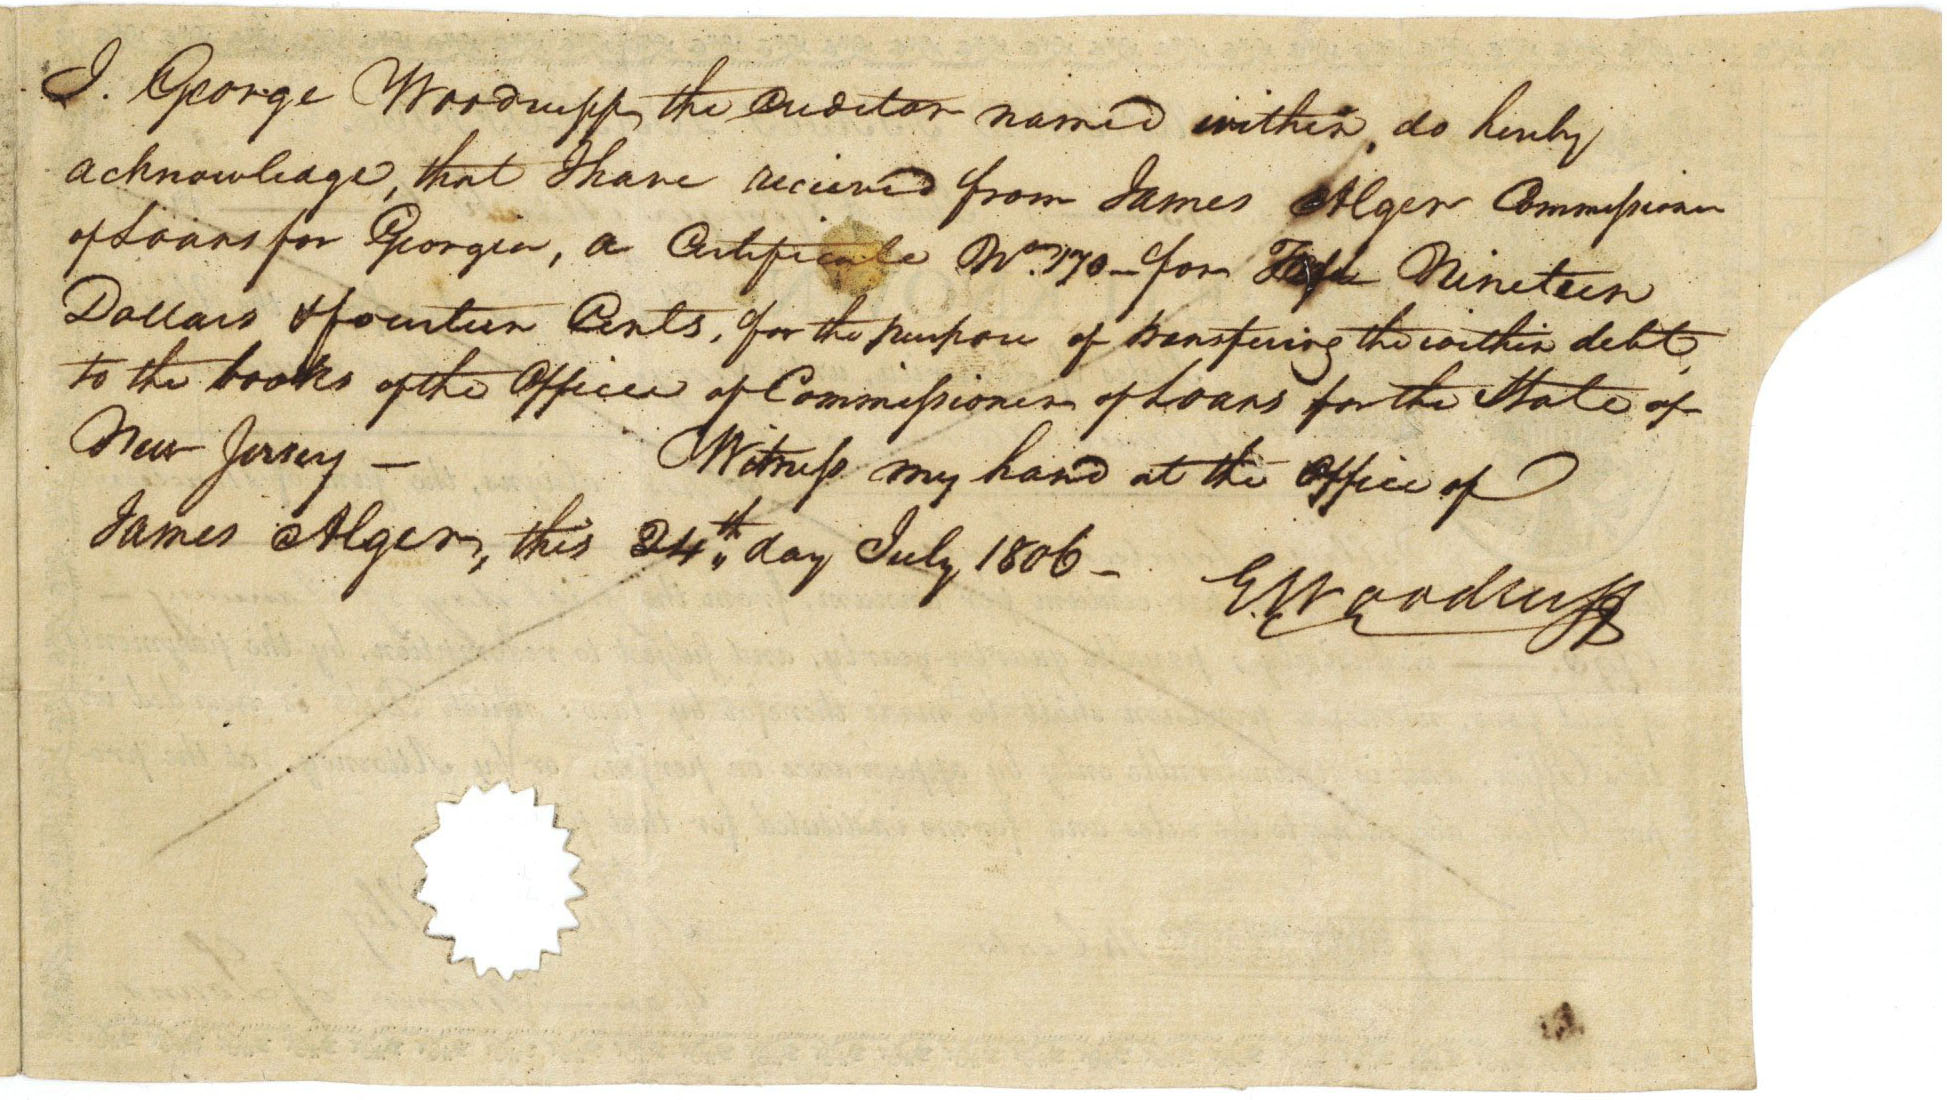 I. George Woodruff, the Creditor named within, do hereby
acknowledge, that I have recieved from James Alger Commissioner
of Loans for Georgia, a Certificate No. 170 – for Nineteen
Dollars & fourteen Cents, for the purpose of transfering the within debt,
to the books of the Office of Commissioner of Loans for the State of
New Jersey – Witness my hand at the Office of
James Alger, this 24th day July 1806 –
G. Woodruff